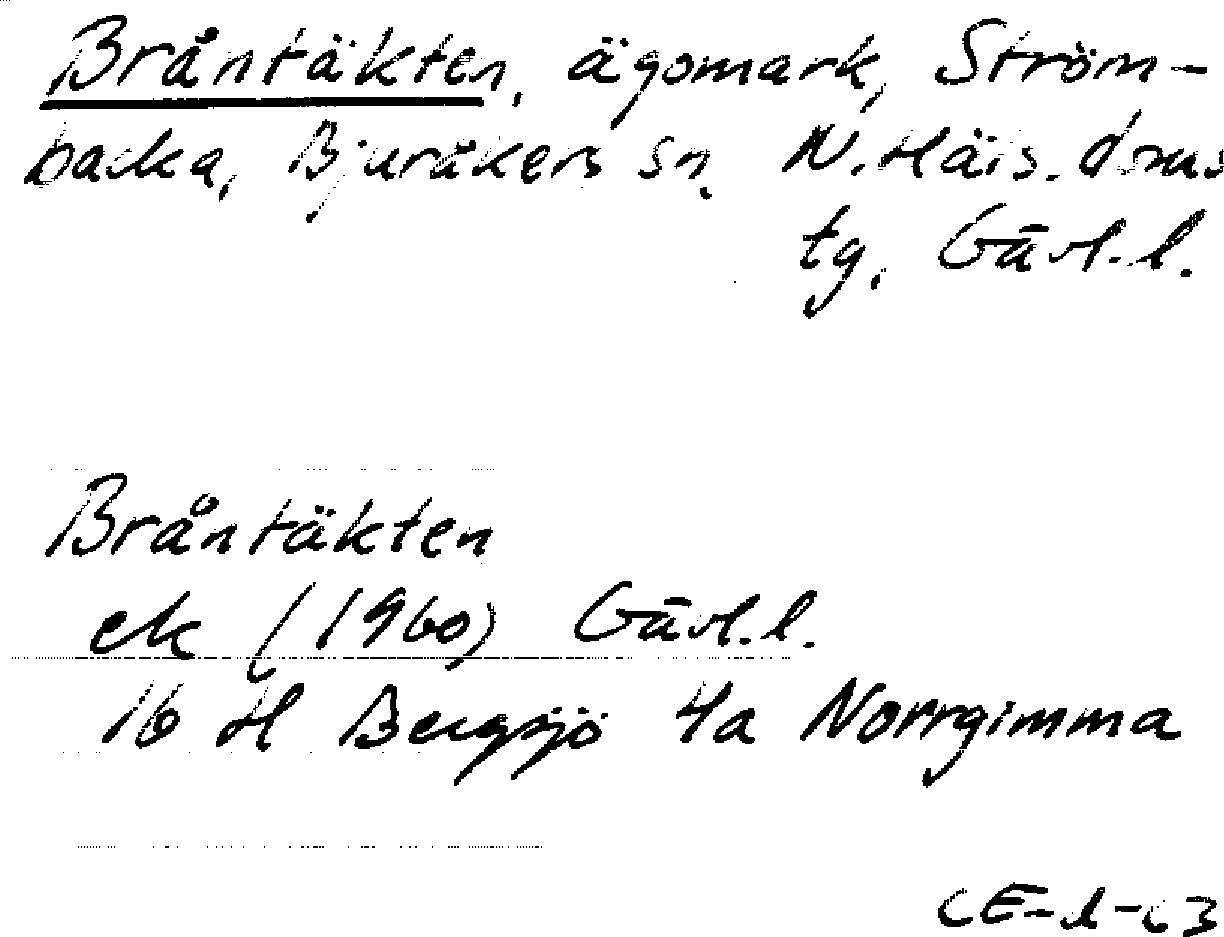 Bråntäkten, ägomark, Ström-
backa, Bjuråkers sn, N. Häls. doms
tg, Gävl. l.
Bråntäkten
ek (1960) Gävl. l.
16 H Bergsjö 4a Norrgimma